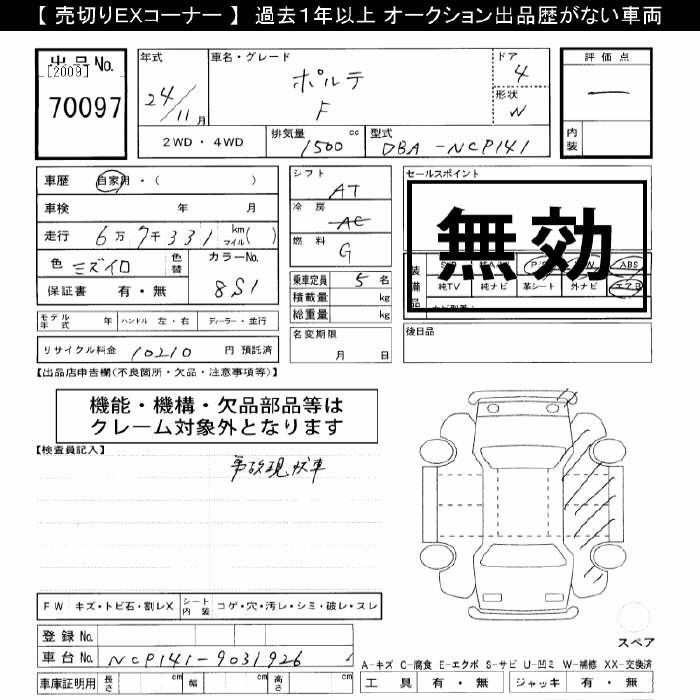 【 売切りEXコーナー 】 過去１年以上 オークション出品歴がない車両
出品 No.
[2009]
70097
年式
24/11月
車名・グレード
ポルテ
F
ドア
4
形状
W
評価点
内装
2WD・4WD
排気量
1500 cc
型式
DBA-NCP141
車歴 自家用・( )
車検 年 月
走行 6万7千331 km マイル( )
色 ミズイロ 色替 カラーNo. 8S1
保証書 有・無
モデル年式 年 ハンドル 左・右 ディーラー・並行
リサイクル料金 10210 円 預託済
シフト AT
冷房 AC
燃料 G
乗車定員 5 名
積載量 kg
総重量 kg
名変期限
月 日
セールスポイント
無効
装備品
ABS
純TV 純ナビ 革シート 外ナビ エアB
後日品
【出品店申告欄(不良箇所・欠品・注意事項等)】
機能・機構・欠品部品等は
クレーム対象外となります
【検査員記入】
事故現状車
FW キズ・トビ石・割レX シート内装 コゲ・穴・汚レ・シミ・破レ・スレ
登録 No.
車台 No. NCP141-9031926
車庫証明用 長さ cm 幅 cm 高さ cm
スペア
A-キズ C-腐食 E-エクボ S-サビ U-凹ミ W-補修 XX-交換済
工具 有・無 ジャッキ 有・無